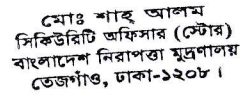 মোঃ শাহ্ আলম
সিকিউরিটি অফিসার (স্টোর)
বাংলাদেশ নিরাপত্তা মুদ্রণালয়
তেজগাঁও, ঢাকা-১২০৮।